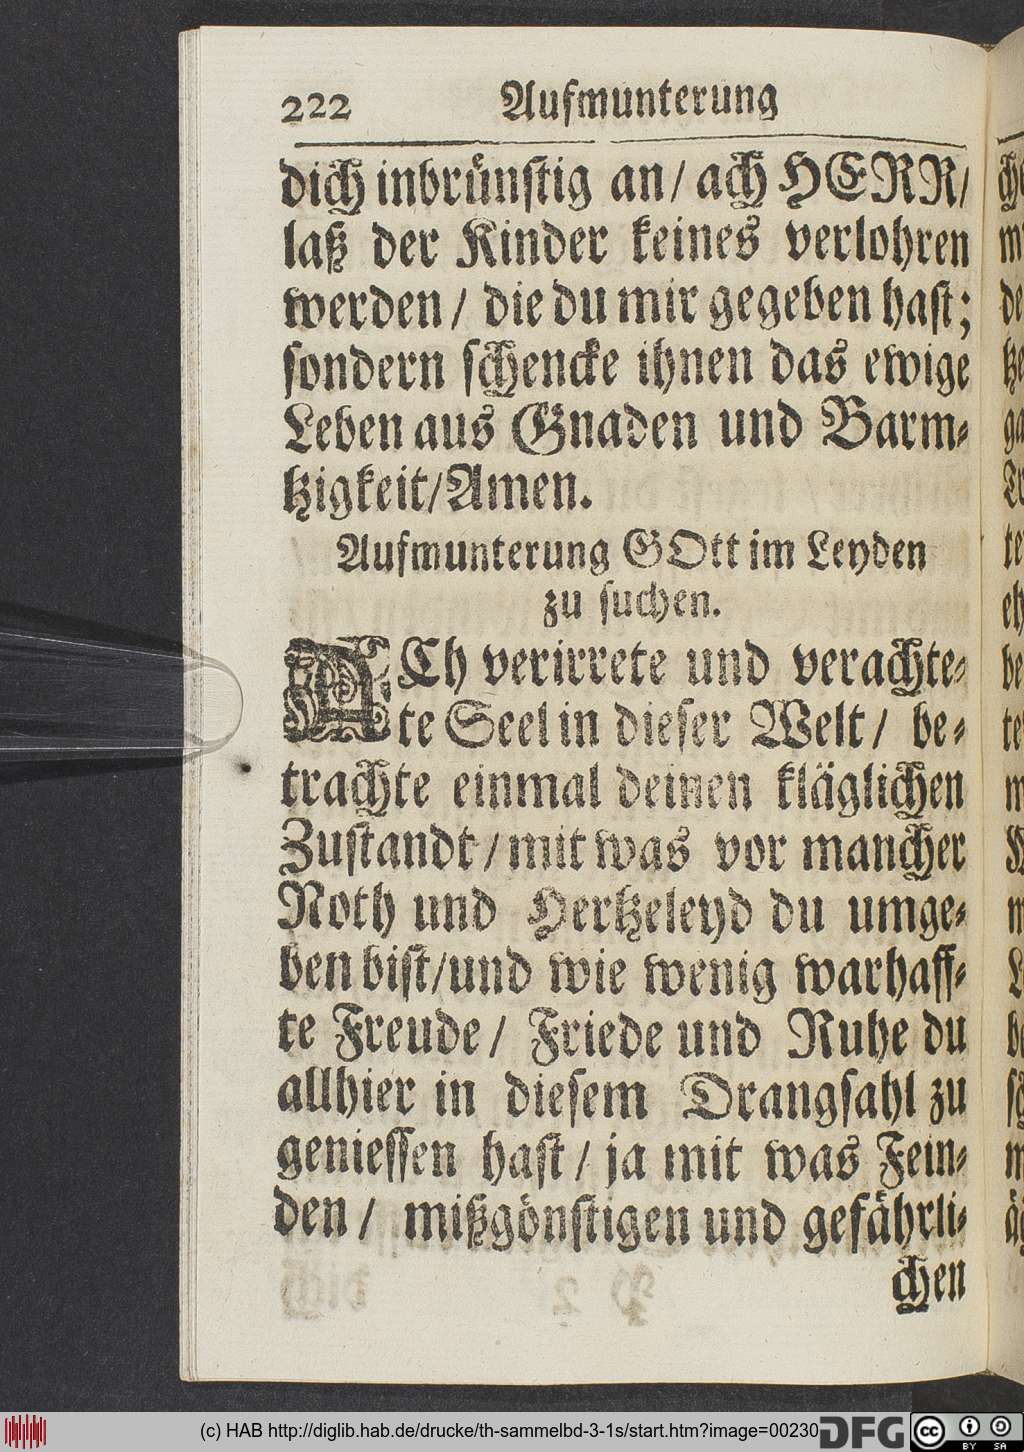 222 Aufmunterung
dich inbrünstig an/ ach HERR/
laß der Kinder keines verlohren
werden/ die du mir gegeben hast;
sondern schencke ihnen das ewige
Leben aus Gnaden und Barm-
tzigkeit/ Amen.
Aufmunterung GOtt im Leyden
zu suchen.
ACh verirrete und verachte-
te Seel in dieser Welt/ be-
trachte einmal deinen kläglichen
Zustandt/ mit was vor mancher
Noth und Hertzeleyd du umge-
ben bist/ und wie wenig warhaff-
te Freude/ Friede und Ruhe du
allhier in diesem Drangsahl zu
geniessen hast/ ja mit was Fein-
den/ mißgönstigen und gefährli-
chen
(c) HAB http://diglib.hab.de/drucke/th-sammelbd-3-1s/start.htm?image=00230
DFG
cc BY SA